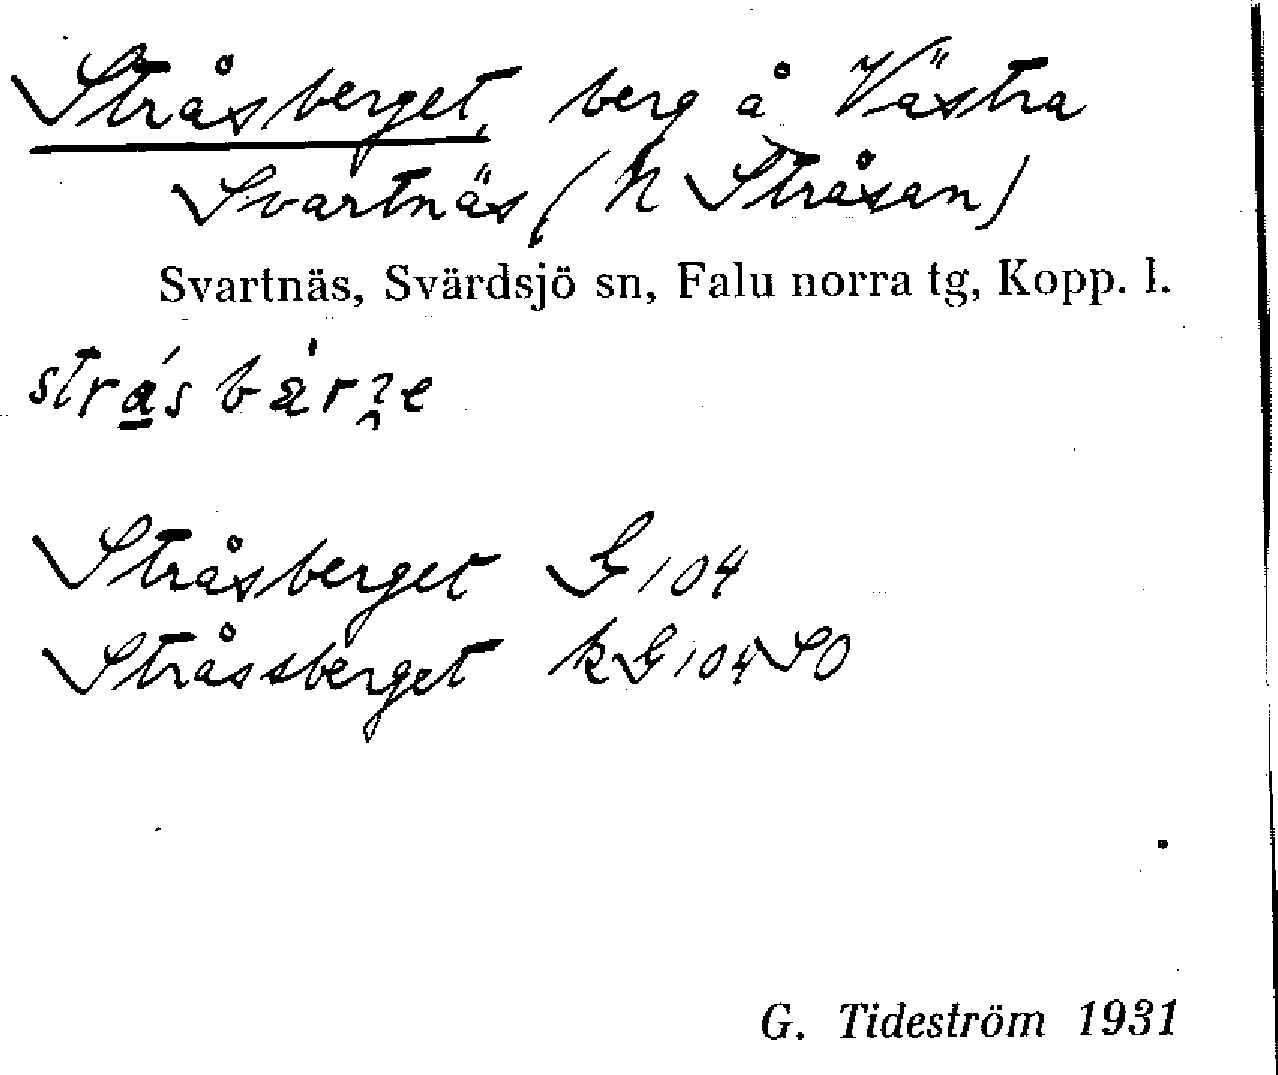 Stråsberget, berg å Västra
Svartnäs (N Stråsan)
Svartnäs, Svärdsjö sn, Falu norra tg, Kopp. l.
Stråsberget G 104
Stråssberget kG 104 SO
G. Tideström 1931